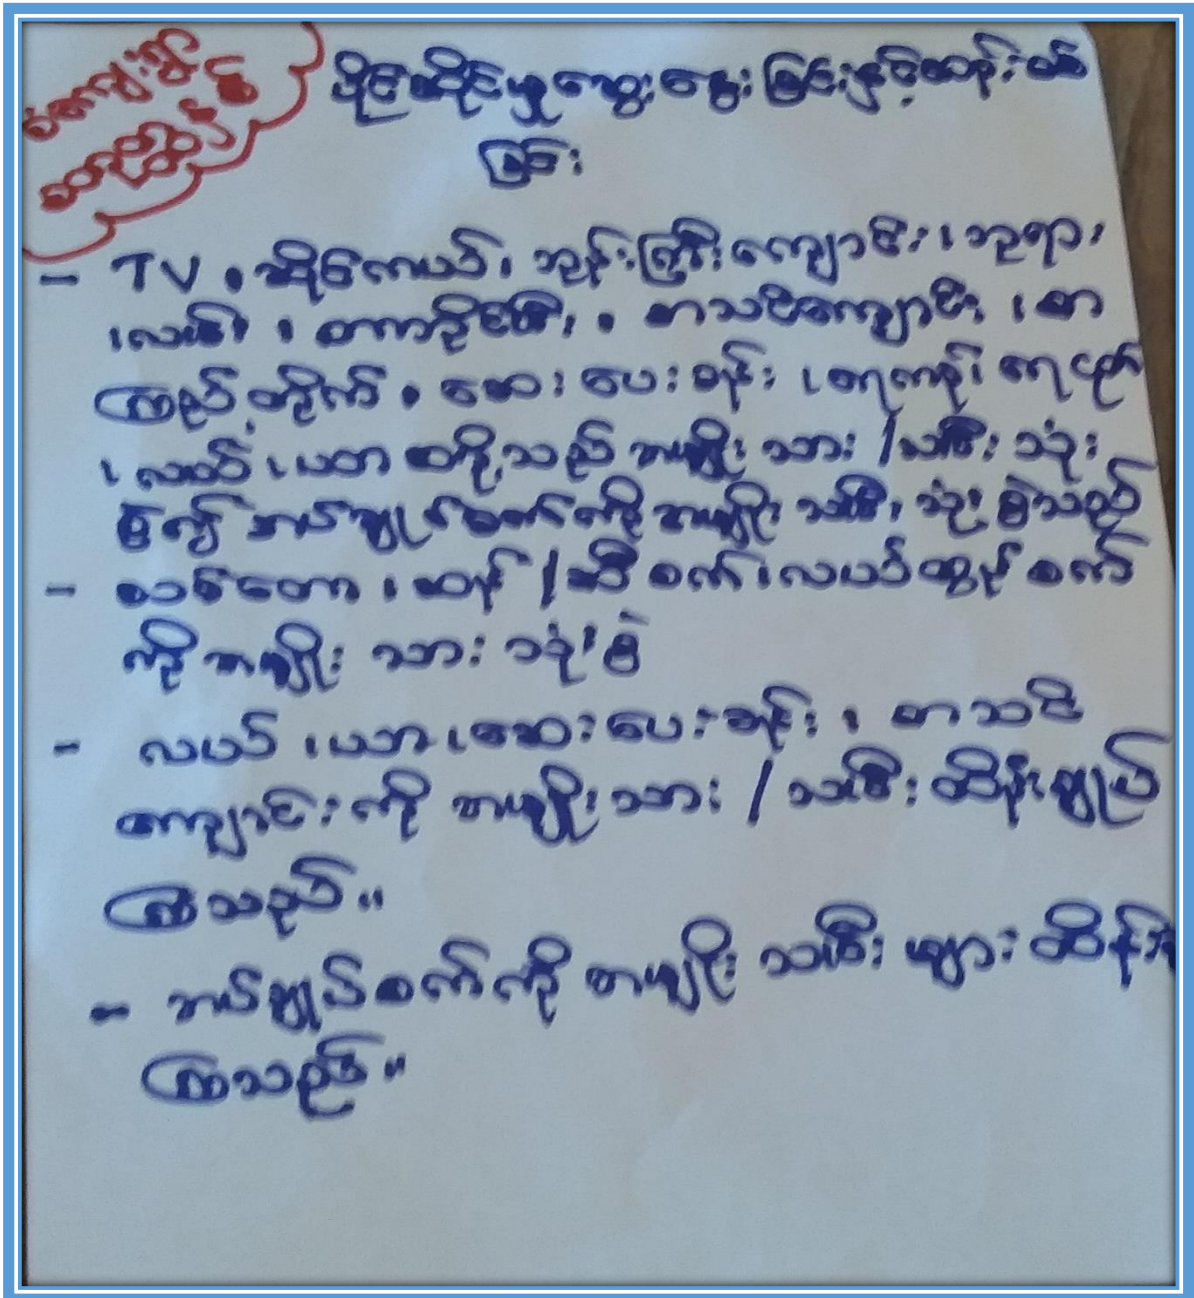 ပိုင်ဆိုင်မှုဆွေးနွေးခြင်းနှင့်ထိန်းသိမ်
ခြင်း
- TV ၊ ဆိုင်ကယ်၊ ဘုန်းကြီးကျောင်း၊ ဘုရား
၊ လမ်း ၊ စာသင်ကျောင်း ၊ စာ
ကြည့်တိုက် ၊ ဆေးပေးခန်း ၊ ရေကန်၊
၊ လယ် ၊ ယာ တို့သည် အမျိုး သား / သမီး သုံး
စွဲ၍ အပ်ချုပ်စက်ကို အမျိုး သမီး သုံး စွဲသည်
- သစ်တော ၊ ဆန် / ဆီ စက်၊ လယ်ထွန် စက်
ကို အမျိုး သား သုံးစွဲ
- လယ် ၊ ယာ ၊ ဆေးပေးခန်း ၊ စာသင်
ကျောင်း ကို အမျိုး သား / သမီး ထိန်းချုပ်
ကြသည်။
- အပ်ချုပ်စက်ကို အမျိုး သမီး များ ထိန်း
ကြသည်။